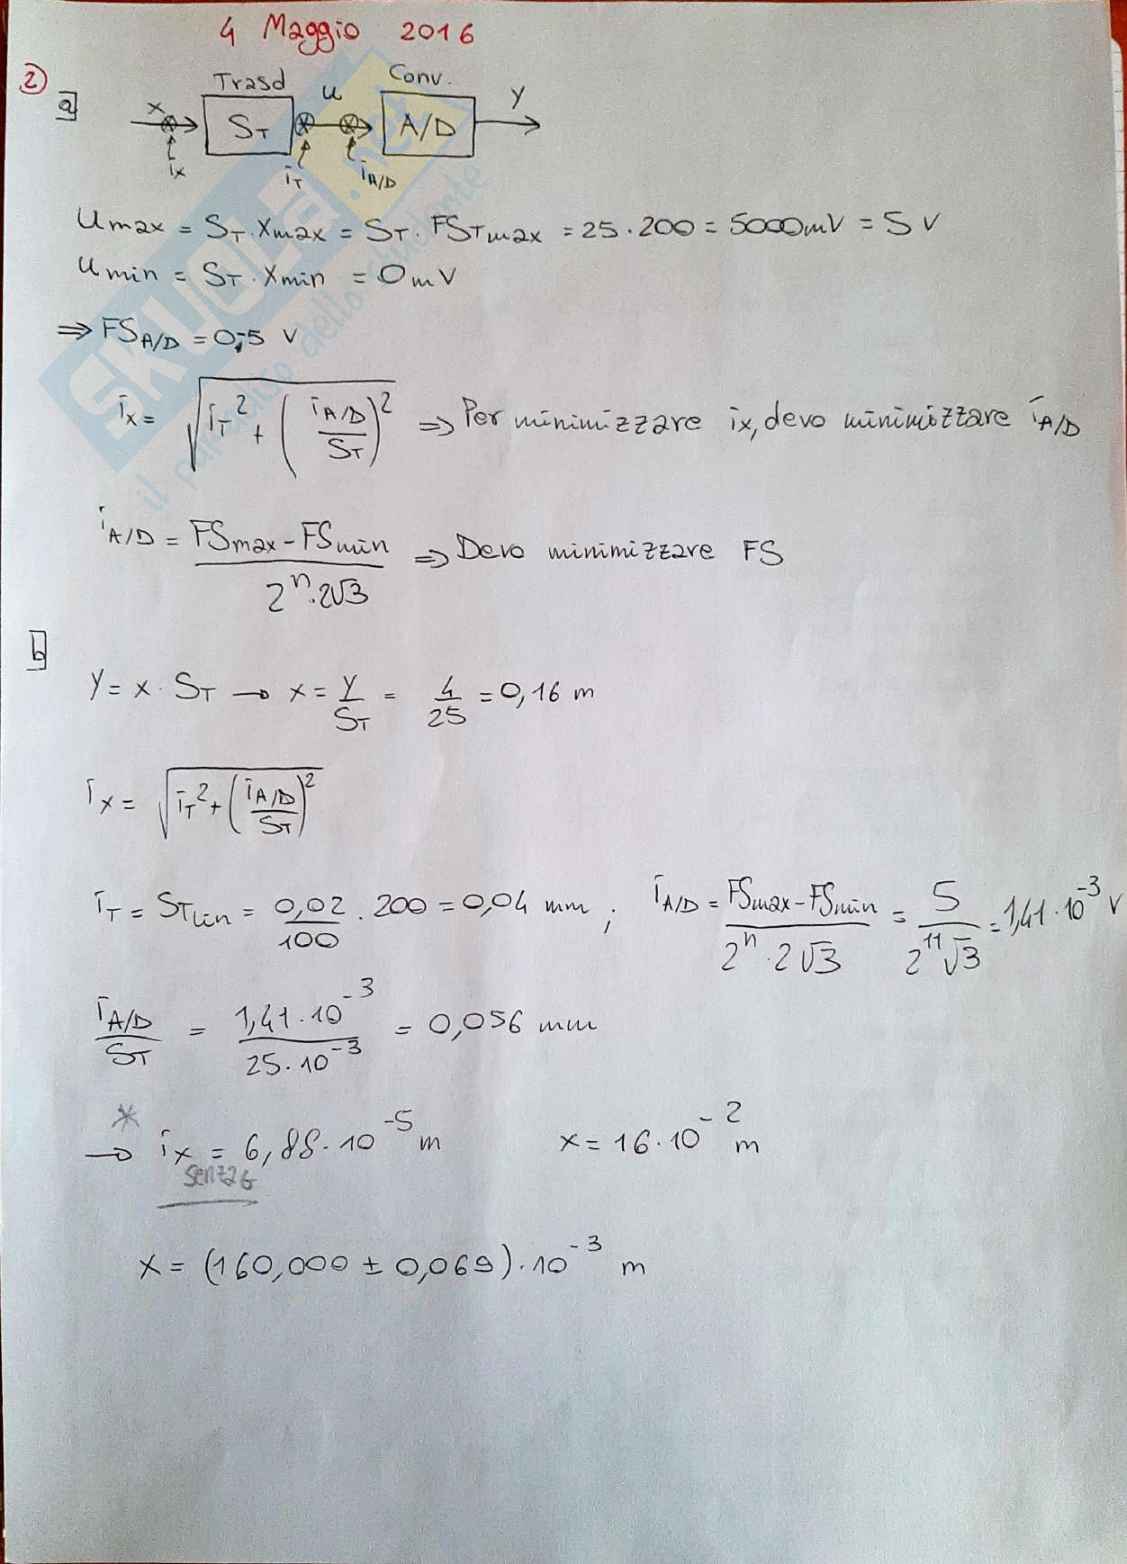 4 Maggio 2016
2)
a) Trasd Conv.
x S_T u A/D y
i_x i_T i_A/D
U_max = S_T · X_max = S_T · FS_Tmax = 25 · 200 = 5000mV = 5 V
U_min = S_T · X_min = 0 mV
⇒ FS_A/D = 0÷5 V
i_x = √(i_T² + (i_A/D / S_T)²) ⇒ Per minimizzare ix, devo minimizzare i_A/D
i_A/D = (FS_max - FS_min) / (2^n · 2√3) ⇒ Devo minimizzare FS
b)
Y = x · S_T → x = Y / S_T = 4/25 = 0,16 m
i_x = √(i_T² + (i_A/D / S_T)²)
i_T = S_Tlin = 0,02/100 · 200 = 0,04 mm ; i_A/D = (FS_max - FS_min) / (2^n · 2√3) = 5 / (2^11 √3) = 1,41 · 10^-3 V
i_A/D / S_T = 1,41 · 10^-3 / 25 · 10^-3 = 0,056 mm
*
→ i_x = 6,88 · 10^-5 m x = 16 · 10^-2 m
x = (160,000 ± 0,069) · 10^-3 m
SKUOLA.net
il paradiso dello studente